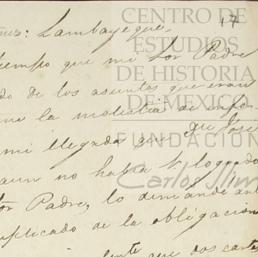 CENTRO DE
ESTUDIOS
DE HISTORIA
DE MEXICO
FUNDACIÓN
Carlos Slim
17
Lambayeque,
tiempo que mi Sor Padre
do de los asuntos que eran
la molestia de
mi llegada
que José
aun no habia logrado
Padre, lo demande ante
mplicado de la obligacion
que dos cartas